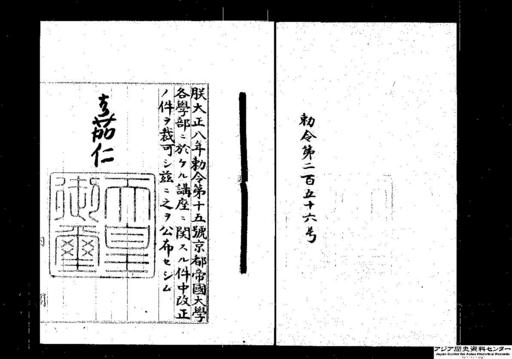 勅令第二百五十六号
朕大正八年勅令第十五號京都帝國大學
各學部ニ於ケル講座ニ関スル件中改正
ノ件ヲ裁可シ茲ニ之ヲ公布セシム
嘉仁
天皇
御璽
アジア歴史資料センター
Japan Center for Asian Historical Records